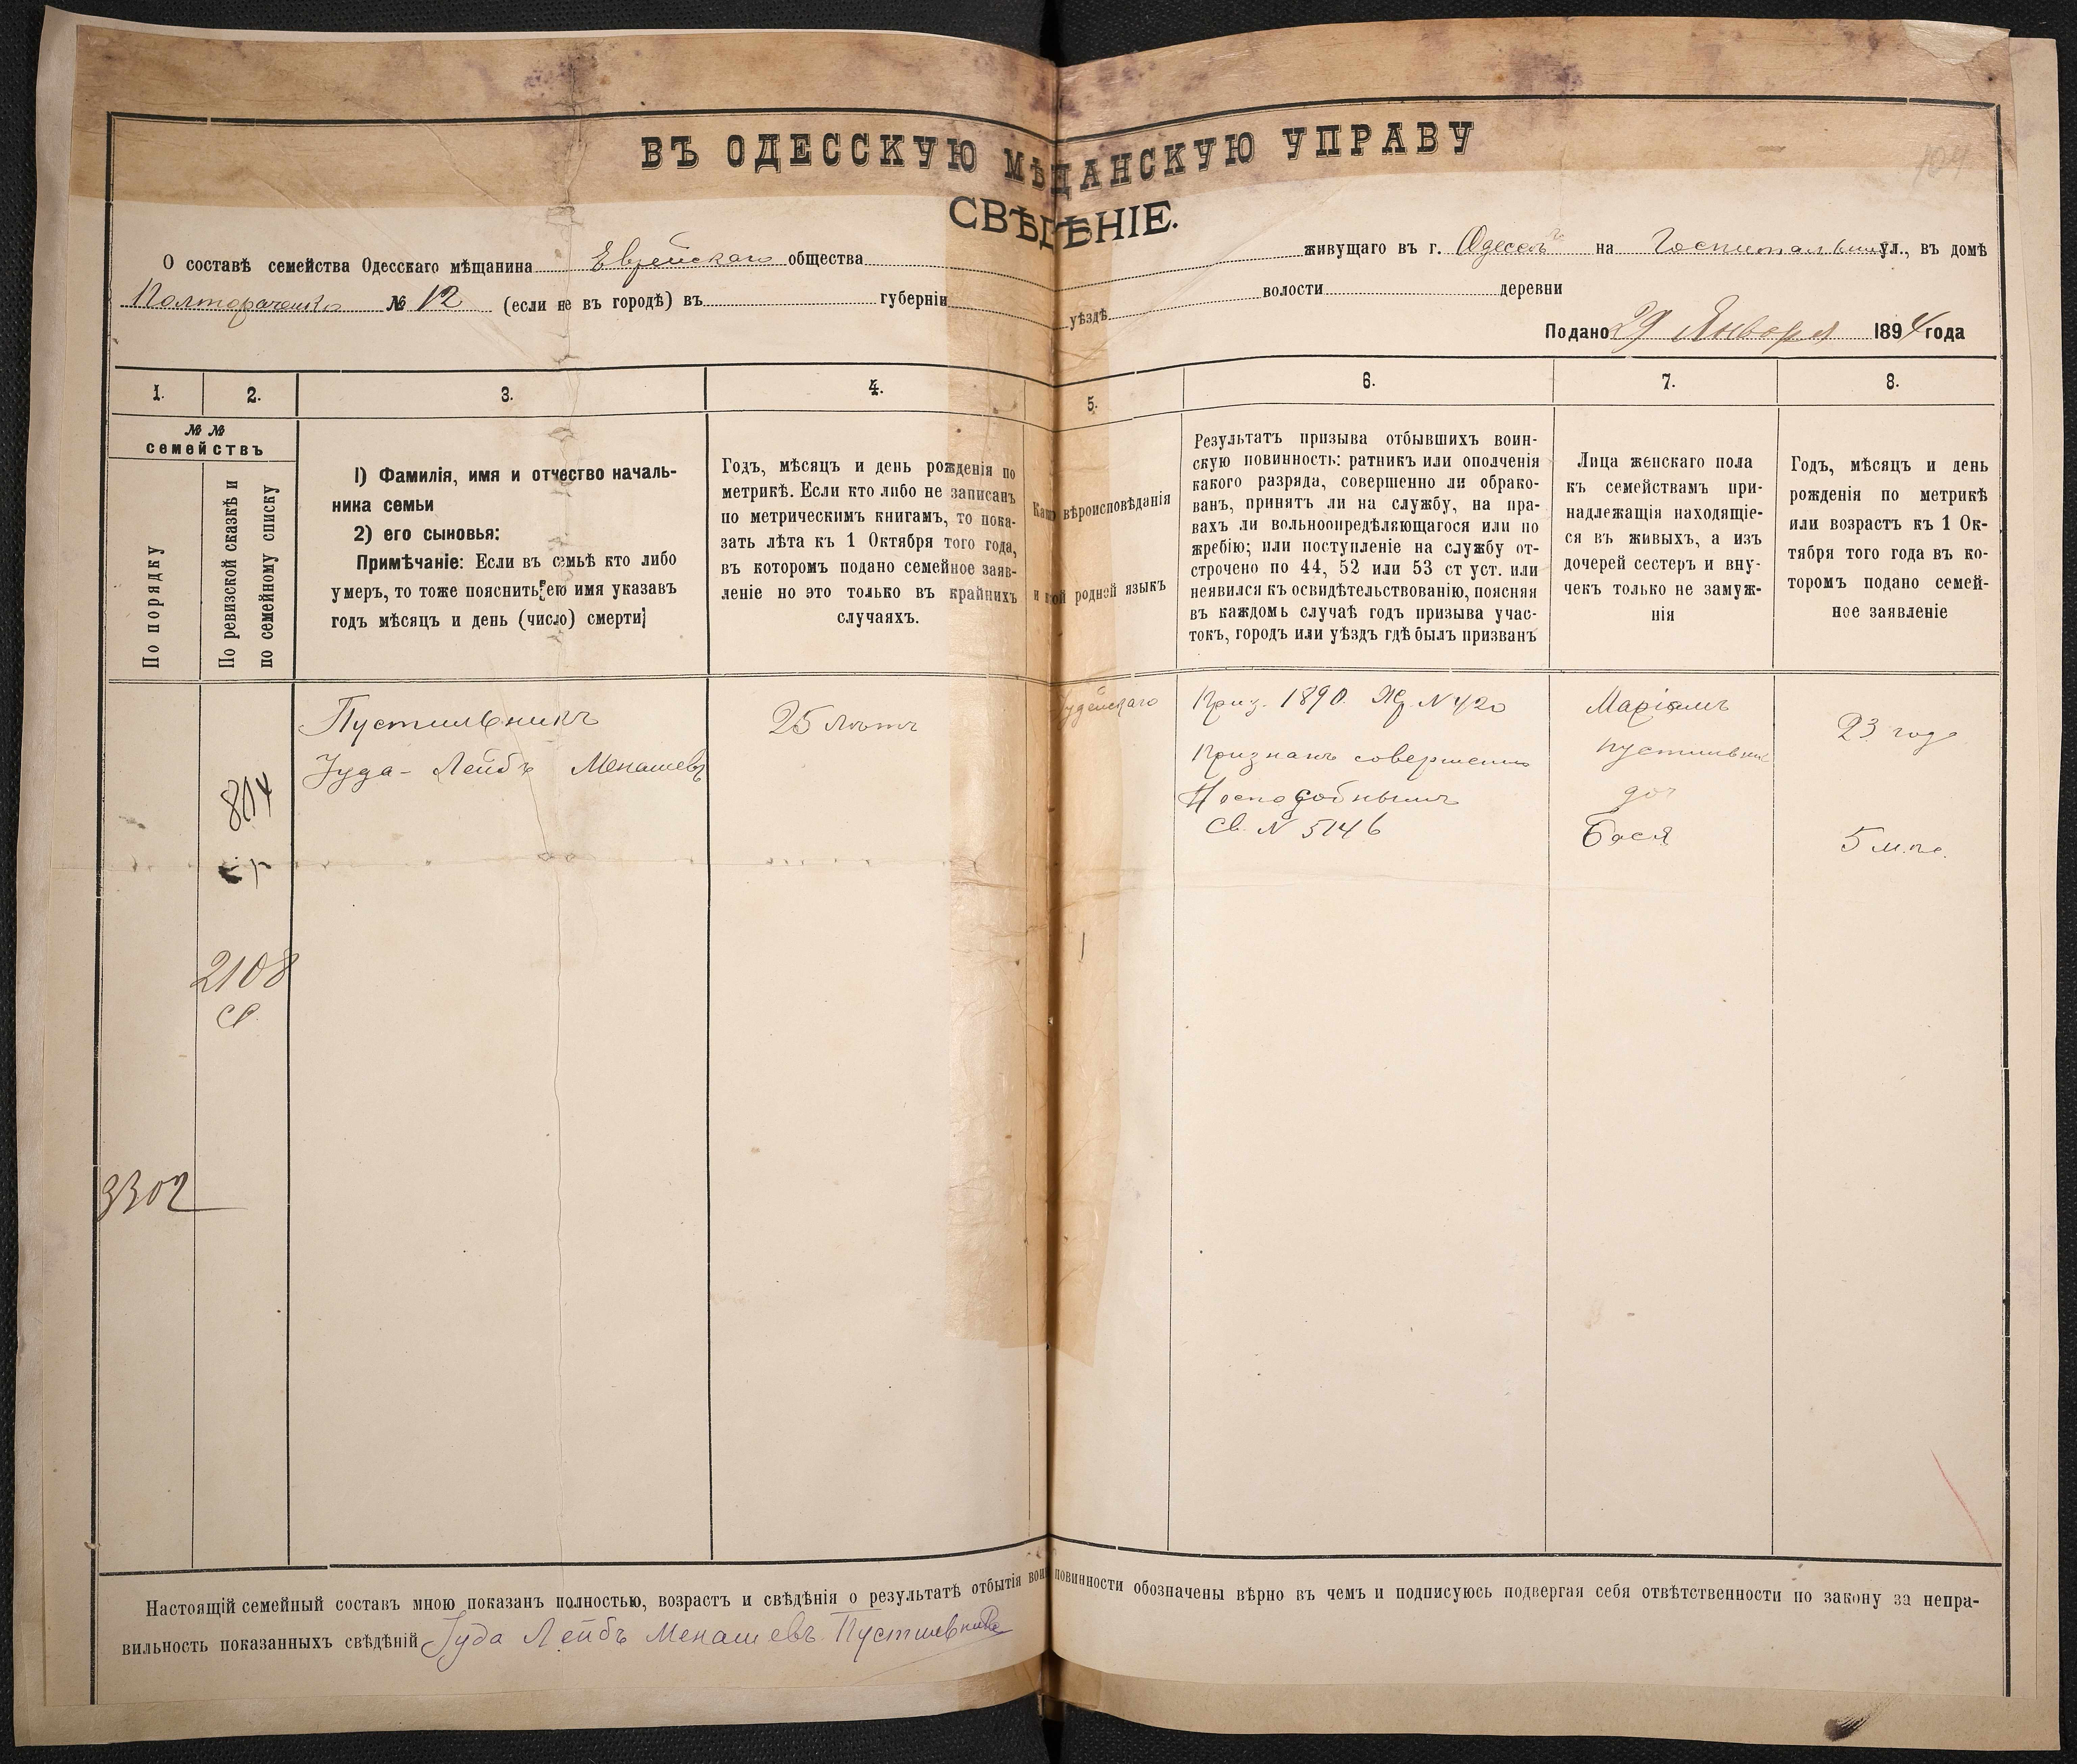 ВЪ ОДЕССКУЮ МѢЩАНСКУЮ УПРАВУ
СВѢДѢНІЕ.
О составѣ семейства Одесскаго мѣщанина Еврейскаго общества живущаго въ г. Одессѣ на Госпитальной ул., въ домѣ
№ 12 (если не въ городѣ) въ губерніи уѣздѣ волости деревни
Подано 29 Января 1894 года
1. 2. 3. 4. 5. 6. 7. 8.
№ №
семействъ
По порядку
По ревизской сказкѣ и
по семейному списку
1) Фамилія, имя и отчество началь-
ника семьи
2) его сыновья:
Примѣчаніе: Если въ семьѣ кто либо
умеръ, то тоже пояснить его имя указавъ
годъ мѣсяцъ и день (число) смерти
Годъ, мѣсяцъ и день рожденія по
метрикѣ. Если кто либо не записанъ
по метрическимъ книгамъ, то пока-
зать лѣта къ 1 Октября того года,
въ которомъ подано семейное заяв-
леніе но это только въ крайнихъ
случаяхъ.
вѣроисповѣданія
и родной языкъ
Результатъ призыва отбывшихъ воин-
скую повинность: ратникъ или ополченія
какого разряда, совершенно ли обрако-
ванъ, принятъ ли на службу, на пра-
вахъ ли вольноопредѣляющагося или по
жребію; или поступленіе на службу от-
строчено по 44, 52 или 53 ст уст. или
неявился къ освидѣтельствованію, поясняя
въ каждомъ случаѣ годъ призыва учас-
токъ, городъ или уѣздъ гдѣ былъ призванъ
Лица женскаго пола
къ семействамъ при-
надлежащія находящіе-
ся въ живыхъ, а изъ
дочерей сестеръ и вну-
чекъ только не замуж-
нія
Годъ, мѣсяцъ и день
рожденія по метрикѣ
или возрастъ къ 1 Ок-
тября того года въ ко-
торомъ подано семей-
ное заявленіе
804
2108
3302
Пустильникъ
Іуда-Лейбъ Менашевъ
25 лѣтъ
Іудейскаго
Приз. 1890. Ж. N 420
Признанъ совершенно
Неспособнымъ
Св. N 5146
Маріамъ
Пустильник
доч
Бася
23 года
5 м.
Настоящій семейный составъ мною показанъ полностью, возрастъ и свѣдѣнія о результатѣ отбытія воин повинности обозначены вѣрно въ чемъ и подписуюсь подвергая себя отвѣтственности по закону за непра-
вильность показанныхъ свѣдѣній Іуда Лейбъ Менашевъ Пустильникъ